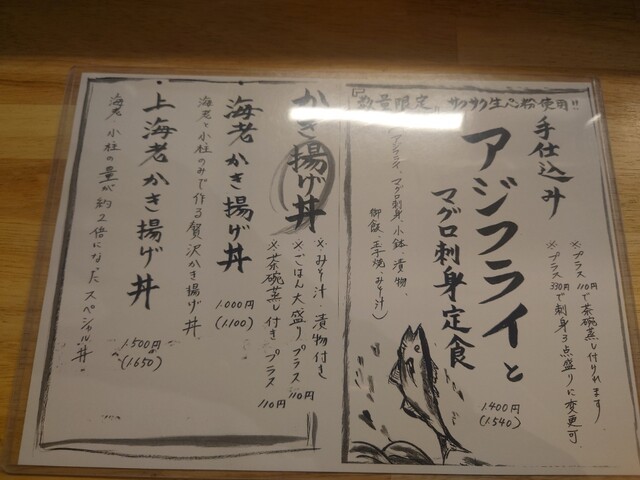 数量限定!! サクサク生パン粉使用!!
手仕込み
アジフライと
マグロ刺身定食
(アジフライ、マグロ刺身、小鉢、漬物、
御飯、玉子焼、みそ汁)
※プラス110円で茶碗蒸し付けれます
※プラス330円で刺身3点盛りに変更可
1.400円
(1.540)
かき揚げ丼
※みそ汁・漬物付き
※ごはん大盛りプラス110円
※茶碗蒸し付きプラス110円
・海老かき揚げ丼
1.000円
(1.100)
海老と小柱のみで作る贅沢かき揚げ丼。
・上海老かき揚げ丼
1.500円
(1.650)
海老、小柱の量が約2倍になったスペシャル丼。